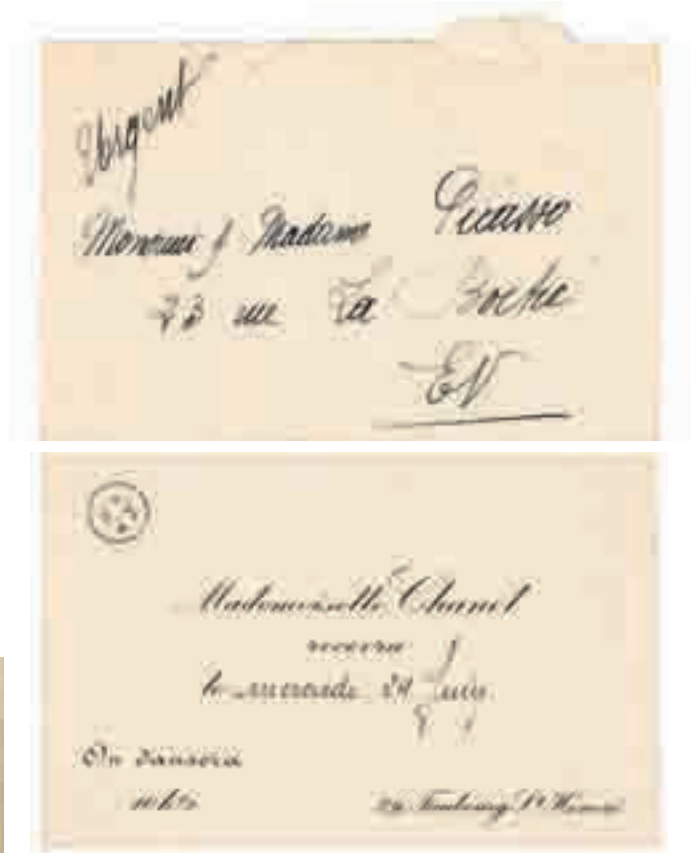 Urgent
Monsieur & Madame Picasso
23 rue La Boétie
EV
Mademoiselle Chanel
recevra
le mercredi 24 Juin
On dansera
10h½
29 Faubourg St Honoré